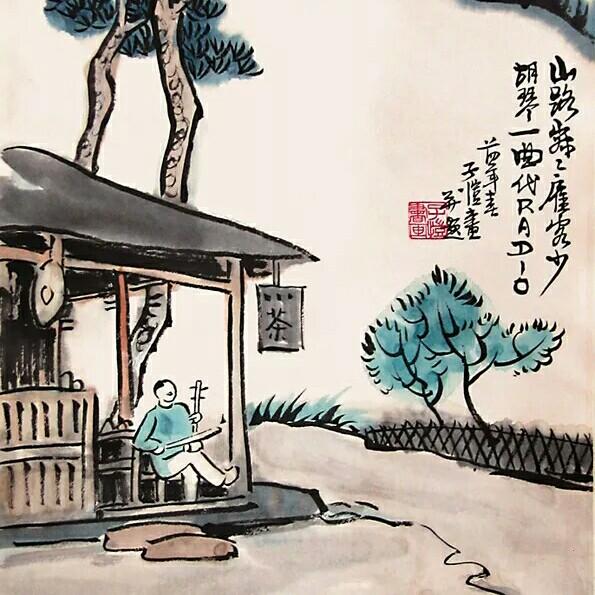 山路寂〻雇客少
胡琴一曲代RADIO
年春
子愷畫
并題
子愷書畫
茶